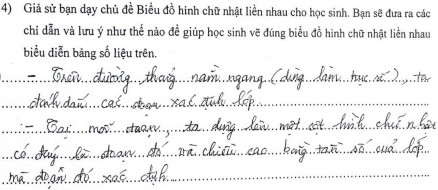 4) Giả sử bạn dạy chủ đề Biểu đồ hình chữ nhật liền nhau cho học sinh. Bạn sẽ đưa ra các
chỉ dẫn và lưu ý như thế nào để giúp học sinh vẽ đúng biểu đồ hình chữ nhật liền nhau
biểu diễn bảng số liệu trên.
- Trên đường thẳng nằm ngang (dùng làm trục số), ta
đánh dấu các đoạn xác định lớp
- Tại mỗi đoạn, ta dựng lên một cột hình chữ nhật
có đáy là đoạn đó và chiều cao bằng tần số của lớp
mà đoạn đó xác định.